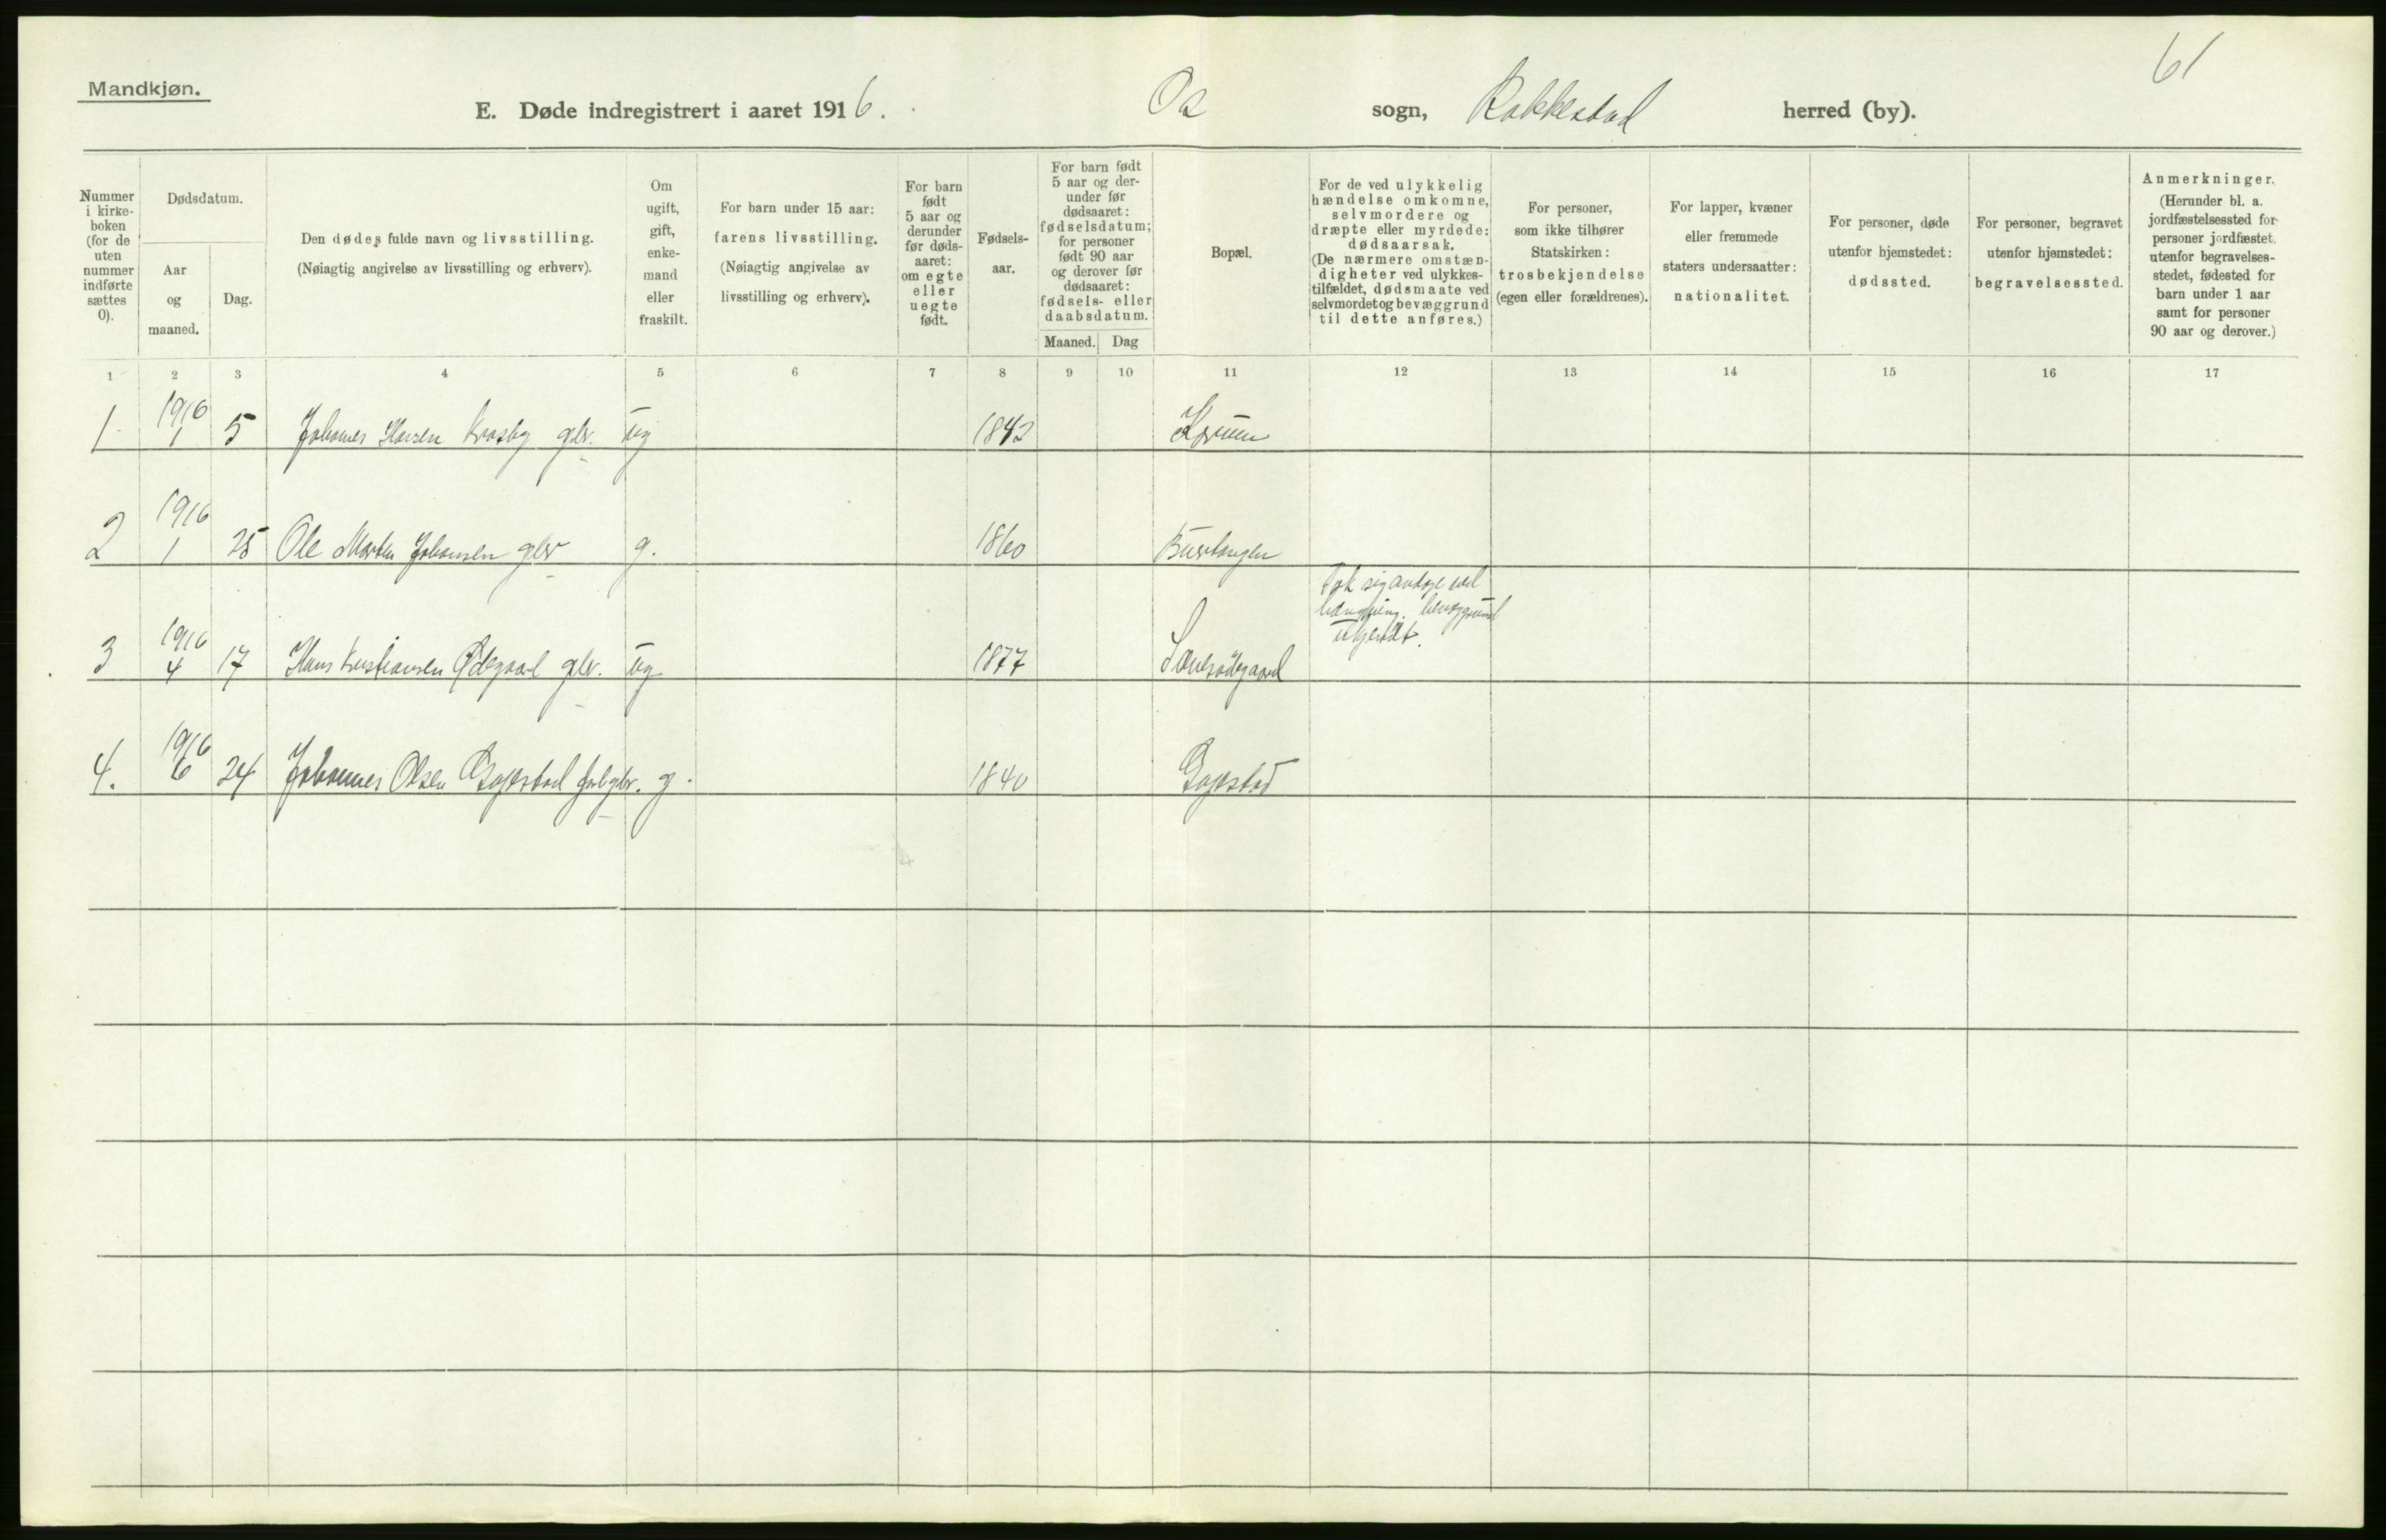 61
Mandkjøn.
E. Døde indregistrert i aaret 1916. Os sogn, Rakkestad herred (by).
Nummer i kirke-boken (for de uten nummer indførte sættes 0).
Dødsdatum.
Aar og maaned.
Dag.
Den dødes fulde navn og livsstilling.
(Nøiagtig angivelse av livsstilling og erhverv).
Om ugift, gift, enke-mand eller fraskilt.
For barn under 15 aar:
farens livsstilling.
(Nøiagtig angivelse av
livsstilling og erhverv).
For barn født 5 aar og derunder før døds-aaret: om egte eller uegte født.
Fødsels-aar.
For barn født 5 aar og der-under før dødsaaret: fødselsdatum; for personer født 90 aar og derover før dødsaaret: fødsels- eller daabsdatum.
Maaned. Dag
Bopæl.
For de ved ulykkelig hændelse omkomne, selvmordere og dræpte eller myrdede: dødsaarsak. (De nærmere omstæn-digheter ved ulykkes-tilfældet, dødsmaate ved selvmordet og bevæggrund til dette anføres.)
For personer, som ikke tilhører Statskirken: trosbekjendelse (egen eller forældrenes).
For lapper, kvæner eller fremmede staters undersaatter: nationalitet.
For personer, døde utenfor hjemstedet: dødssted.
For personer, begravet utenfor hjemstedet: begravelsessted.
Anmerkninger. (Herunder bl. a. jordfæstelsessted for personer jordfæstet utenfor begravelses-stedet, fødested for barn under 1 aar samt for personer 90 aar og derover.)
1 2 3 4 5 6 7 8 9 10 11 12 13 14 15 16 17
1 1916 1 5 Johannes Hansen gbr. ug 1842
2 1916 1 25 Ole Martin Johansen gbr g. 1860
Tok sig av dage ved
hængning. bevæggrund
3 1916 4 17 Hans Kristiansen Ødegaard gbr. ug 1877
4. 1916 6 24 Johannes Olsen g. 1840